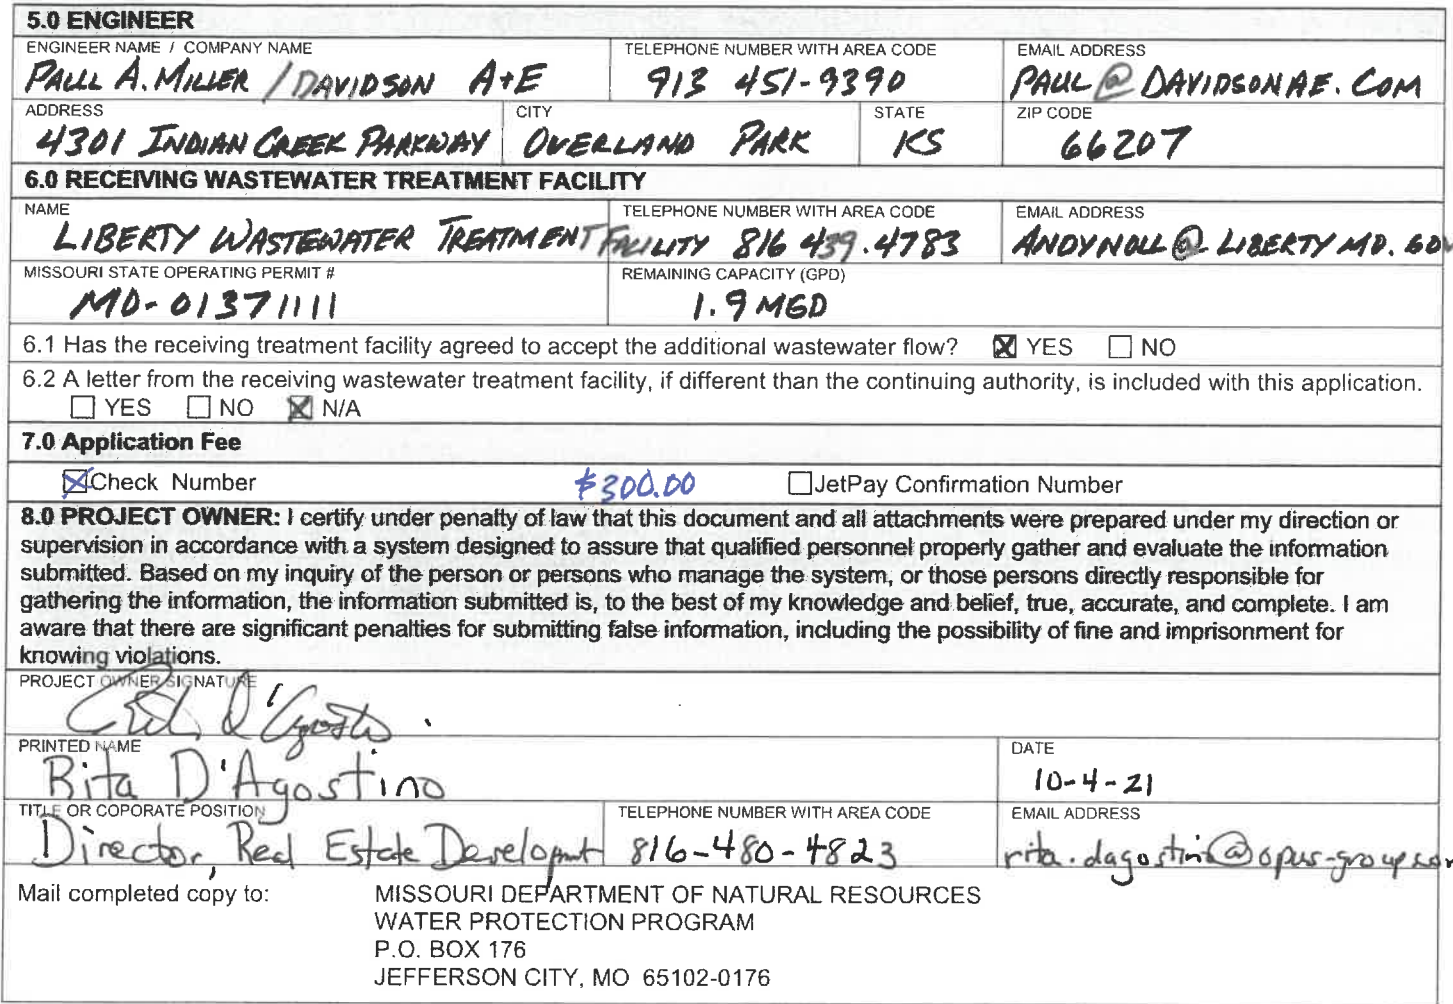 5.0 ENGINEER
ENGINEER NAME / COMPANY NAME TELEPHONE NUMBER WITH AREA CODE EMAIL ADDRESS
PAUL A. MILLER / DAVIDSON A+E 913 451-9390 PAUL@DAVIDSONAE.COM
ADDRESS CITY STATE ZIP CODE
4301 INDIAN CREEK PARKWAY OVERLAND PARK KS 66207
6.0 RECEIVING WASTEWATER TREATMENT FACILITY
NAME TELEPHONE NUMBER WITH AREA CODE EMAIL ADDRESS
LIBERTY WASTEWATER TREATMENT FACILITY 816 439.4783 ANDYNOLL@LIBERTYMO.GOV
MISSOURI STATE OPERATING PERMIT # REMAINING CAPACITY (GPD)
MO-01371111 1.9 MGD
6.1 Has the receiving treatment facility agreed to accept the additional wastewater flow? ☒ YES ☐ NO
6.2 A letter from the receiving wastewater treatment facility, if different than the continuing authority, is included with this application.
☐ YES ☐ NO ☒ N/A
7.0 Application Fee
☒ Check Number $300.00 ☐ JetPay Confirmation Number
8.0 PROJECT OWNER: I certify under penalty of law that this document and all attachments were prepared under my direction or
supervision in accordance with a system designed to assure that qualified personnel properly gather and evaluate the information
submitted. Based on my inquiry of the person or persons who manage the system, or those persons directly responsible for
gathering the information, the information submitted is, to the best of my knowledge and belief, true, accurate, and complete. I am
aware that there are significant penalties for submitting false information, including the possibility of fine and imprisonment for
knowing violations.
PROJECT OWNER SIGNATURE
Rita D'Agostino
PRINTED NAME DATE
Rita D'Agostino 10-4-21
TITLE OR COPORATE POSITION TELEPHONE NUMBER WITH AREA CODE EMAIL ADDRESS
Director, Real Estate Developmt 816-480-4823 rita.dagostin@opus-group.com
Mail completed copy to: MISSOURI DEPARTMENT OF NATURAL RESOURCES
WATER PROTECTION PROGRAM
P.O. BOX 176
JEFFERSON CITY, MO 65102-0176